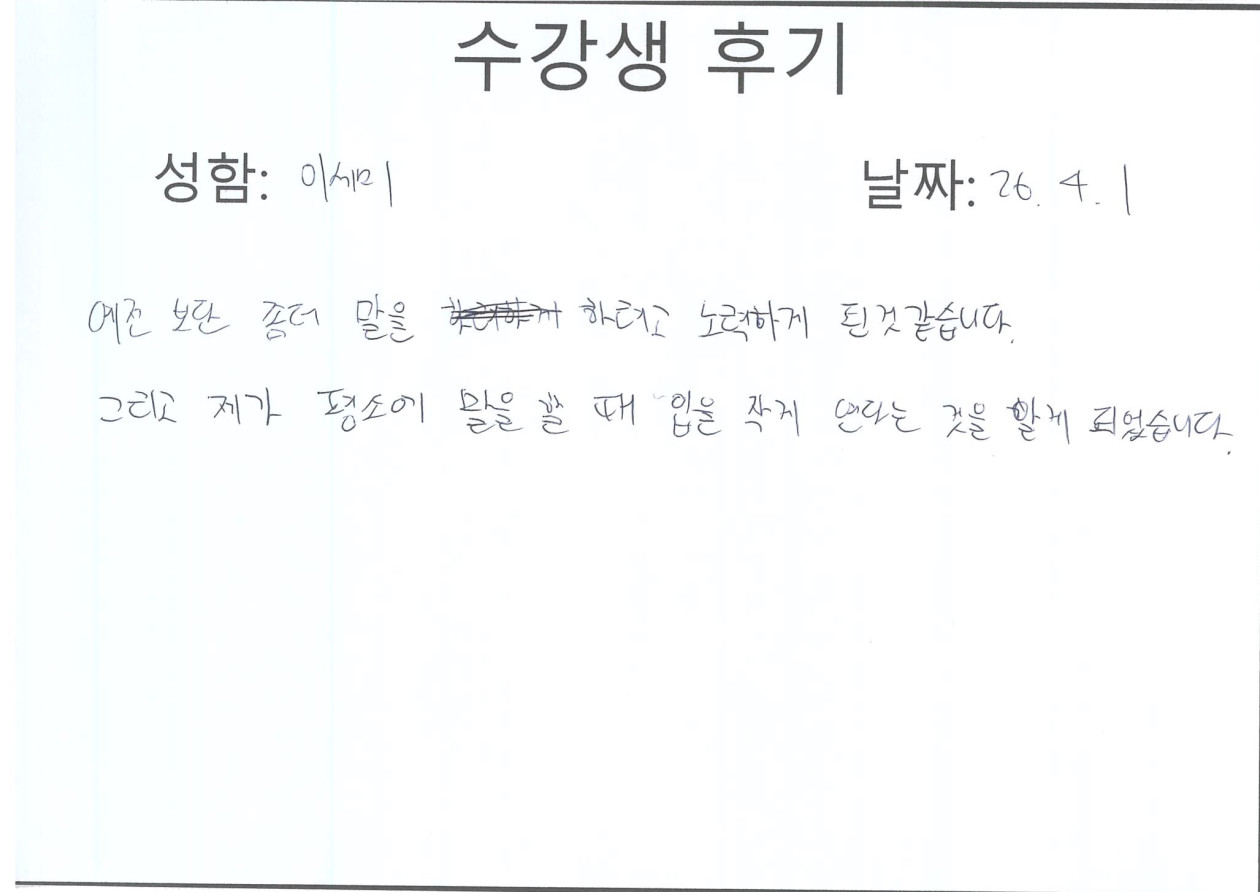 수강생 후기
성함: 이세미
날짜: 26. 4. 1
예전 보단 좀더 말을 하려고 노력하게 된것같습니다.
그리고 제가 평소에 말을 할 때 입을 작게 연다는 것을 알게 되었습니다.